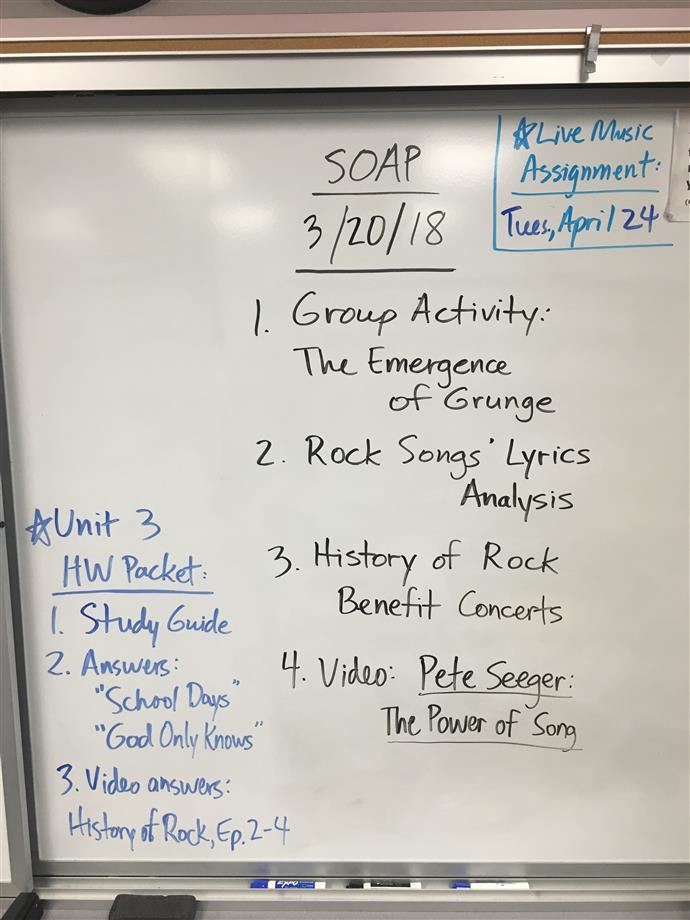 SOAP
3/20/18
☆Live Music
Assignment:
Tues., April 24
1. Group Activity:
The Emergence
of Grunge
2. Rock Songs' Lyrics
Analysis
3. History of Rock
Benefit Concerts
4. Video: Pete Seeger:
The Power of Song
☆Unit 3
HW Packet:
1. Study Guide
2. Answers:
"School Days"
"God Only Knows"
3. Video answers:
History of Rock, Ep. 2-4
EXPO